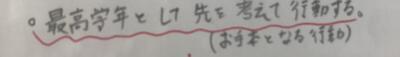 。最高学年として先を考えて行動する。
(お手本となる行動)